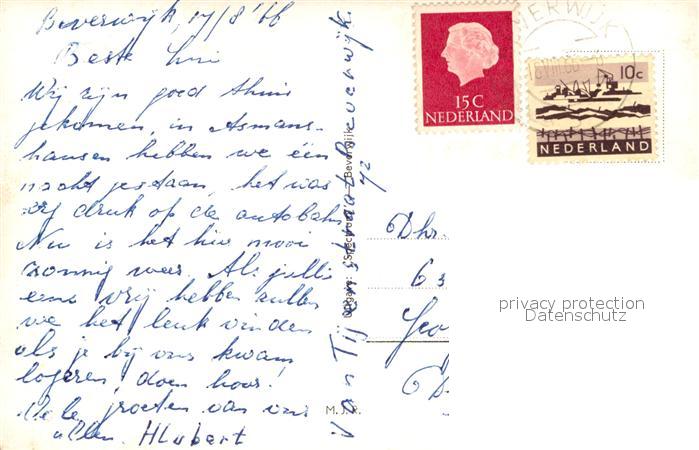 Beverwijk, 17/8 '66
Beste
Wij zijn goed thuis
gekomen, in Asmans-
hausen hebben we één
nacht gestaan, het was
erg druk op de autobahn
Nu is het hier mooi
zonnig weer. Als jullie
eens vrij hebben zullen
we het leuk vinden
als je bij ons kwam
logeren, doen hoor!
Vele groeten van ons
allen. Hubert
van
Beverwijk
M.J.R.
15 C
NEDERLAND
10 c
NEDERLAND
Dhr.
63
Geo
privacy protection
Datenschutz